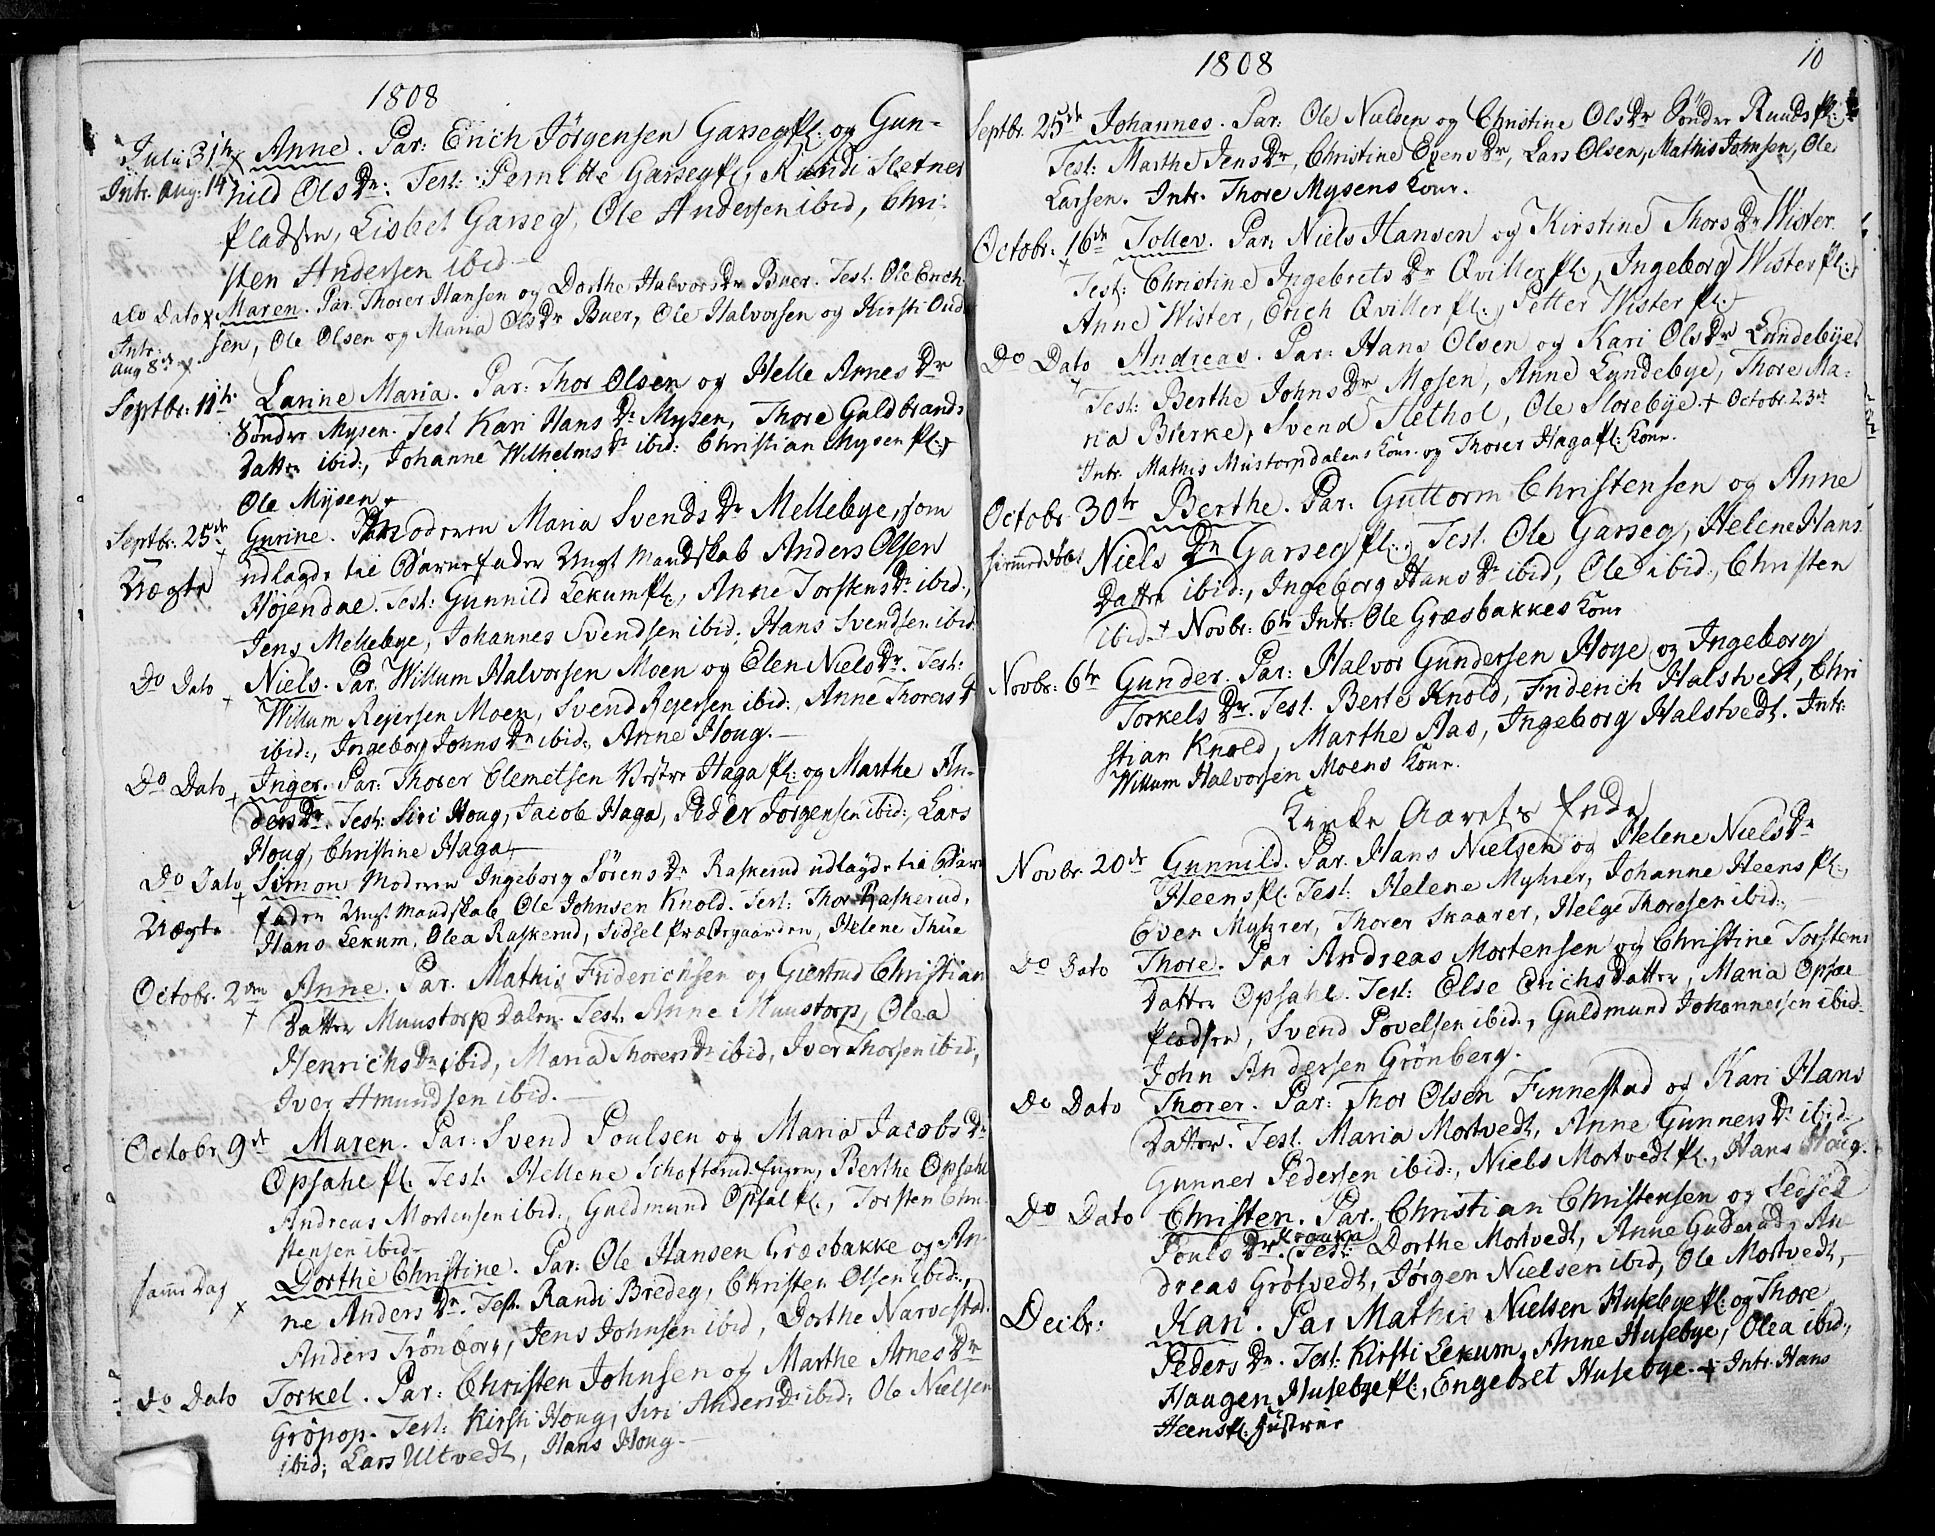 1808
Julii 31te Anne. Par: Erich Jörgensen Garseg Pl. og Gun-
Intr. Aug: 14 hild Ols Dr: Test: Pernette Garsegpl, Randi Sletner
Pladsen, Lisbet Garseg, Ole Andersen ibid, Chri-
sten Andersen ibid
do Dato Maren. Par. Thorer Hansen og Dorthe Halvors Dr Buer. Test: Ole Erich-
Intr: sen, Ole Olsen og Maria Ols Dr Buer, Ole Halvorsen og Kirsti Oud
Aug 8de
Septbr: 11te Larine Maria. Par: Thor Olsen og Helle Arnes Dr
Sönder Mysen. Test Kari Hans Dr Mysen, Thore Guldbrands
Datter ibid:, Johanne Wilhelms Dr ibid: Christian Mysen Pl:
Ole Mysen
Septbr: 25de Gurine. Moderen Maria Svends Dr Mellebye, som
Uægte udlagde til Barnefader Ungt Mandskab Anders Olsen
Höjendal. Test: Gunnild Lekum Pl:, Anne Torstens Dr ibid:,
Jens Mellebye, Johannes Svendsen ibid: Hans Svendsen ibid
Do Dato Niels. Par. Willum Halvorsen Moen og Elen Niels Dr. Test:
Willum Rejersen Moen, Svend Rejersen ibid:, Anne Thorers Dr
ibid:, Ingeborg Johns Dr ibid:, Anne Houg.
Do Dato Inger. Par: Thorer Clemetsen Vestre Haga pl: og Marthe An-
ders Dr. Test: Siri Houg, Jacob Haga, Peder Jörgensen ibid:, Lars
Houg, Christine Haga
Do Dato Simon Moderen Ingeborg Sörens Dr Raskerud udlagde til Barne
Uægte fader Ungt Mandskab Ole Johnsen Knold. Test: Thor Raskerud,
Hans Lekum, Olea Raskerud, Sidsel Præstegaarden, Helene Thüe
Octobr. 2den Anne. Par. Mathis Friderichsen og Giertrud Christian
Datter Muustorp Dalen. Test. Anne Muustorp, Olea
Henrichs Dr ibid, Maria Thorers Dr ibid, Iver Thorsen ibid,
Iver Amundsen ibid.
Octobr. 9de Maren. Par: Svend Poulsen og Maria Jacobs Dr
Opsahl pl. Test. Hellene Schofterud Engen, Berthe Opsahl
Andreas Mortensen ibid:, Guldmund Opsal pl:, Torsten Chri-
stensen ibid
samme Dag Dorthe Christine. Par: Ole Hansen Græsbakke og An-
ne Anders Dr. Test. Randi Bredeg, Christen Olsen ibid:,
Anders Trönborg, Jens Johnsen ibid, Dorthe Narvestad.
do Dato Torkel. Par: Christen Johnsen og Marthe Arnes Dr
Gröpop. Test: Kirsti Houg, Siri Anders Dr ibid: Ole Nielsen
ibid; Lars Ultvedt, Hans Houg
1808
10
Septbr. 25de Johannes. Par: Ole Nulden og Christine Ols Dr Sönder Ruuds pl:
Test: Marthe Jens Dr, Christine Evens Dr, Lars Olsen, Mathis Johnsen, Ole
Larsen. Intr. Thore Mysens Kone.
Octobr: 16de Tollev. Par: Niels Hansen og Kirstine Thors Dr Wister.
Test: Christine Ingebrets Dr Qviller pl:, Ingeborg Wister pl:,
Anne Wister, Erich Qviller pl:, Petter Wister pl:
Do Dato Andreas. Par: Hans Olsen og Kari Ols Dr Lundebye.
Test: Berthe Johns Dr Mosen, Anne Lundebye, Thore Ma-
ria Bierke, Svend Slethol, Ole Slorebye. + Octobr. 23de
Intr. Mathis Mustorpdalens Kone og Thorer Haga pl: Kone.
Octobr 30te Berthe. Par: Guttorm Christensen og Anne
Niels Dr Garseg pl: Test. Ole Garseg, Helene Hans
Datter ibid:, Ingeborg Hans Dr ibid, Ole ibid:, Christen
ibid. + Novbr: 6te Intr: Ole Græsbakkes Kone
Novbr: 6te Gunder. Par: Halvor Gundersen Hoye og Ingeborg
Torkels Dr. Test. Berte Knold, Friderich Halstvedt, Chri
stian Knold, Marthe Aas, Ingeborg Halstvedt. Intr:
Willum Halvorsen Moens Kone.
Kirke Aarets Ende
Novbr. 20de Gunnild. Par. Hans Nielsen og Helene Niels Dr
Heens pl. Test: Helene Myhrer, Johanne Heens pl.,
Even Myhrer, Thorer Skaarer, Helge Thoresen ibid:,
Do Dato Thore. Par Andreas Mortensen og Christine Torstens
Datter Opsahl. Test: Else Erichs Datter, Maria Opsal
Pladsen, Svend Povelsen ibid:, Guldmund Johannessen ibid
John Andersen Grönberg.
Do Dato Thorer. Par: Thor Olsen Finnestad og Kari Hans
Datter. Test. Maria Mortvedt, Anne Gunners Dr ibid:
Gunner Pedersen ibid:, Niels Mortvedt pl., Hans Houg.
Do Dato Christen. Par. Christian Christensen og Sedsel
Pouls Dr Krauka. Test: Dorthe Mortvedt, Anne Guderud, An-
dreas Grötvedt, Jörgen Nielsen ibid, Ole Mortvedt,
Decbr: Kari. Par Mathis Nielsen Husebye pl: og Thore
Peders Dr. Test: Kirsti Lekum, Anne Husebye, Olea ibid,
Haagen Husebye pl:, Engebret Husebye. + Intr. Hans
Heens pl: Hustrue